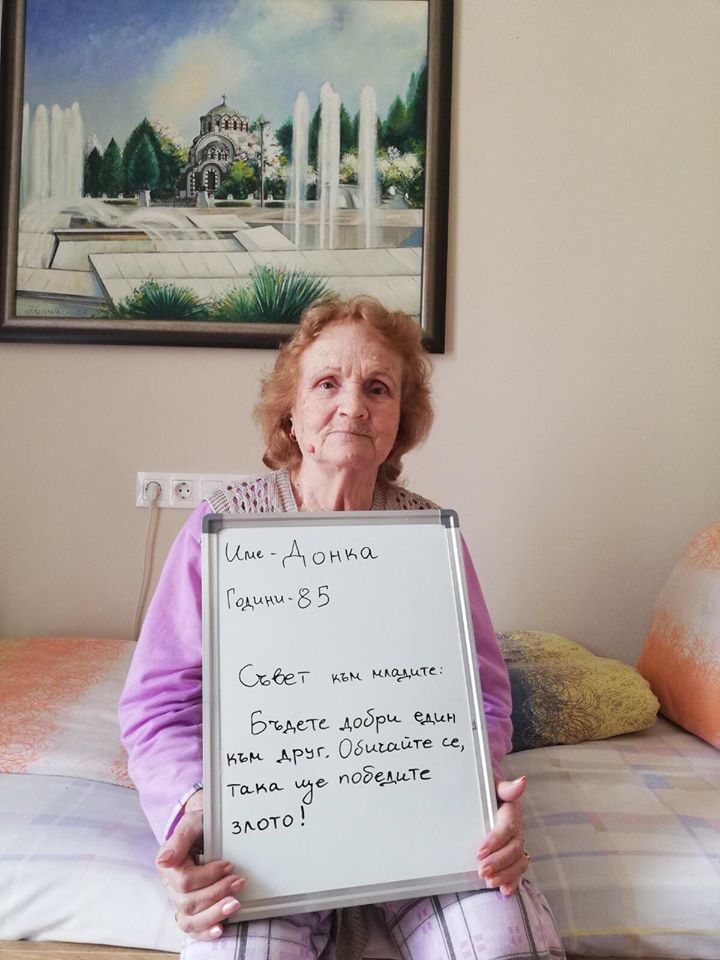 Име - Донка
Години - 85
Съвет към младите:
Бъдете добри един
към друг. Обичайте се,
така ще победите
злото!